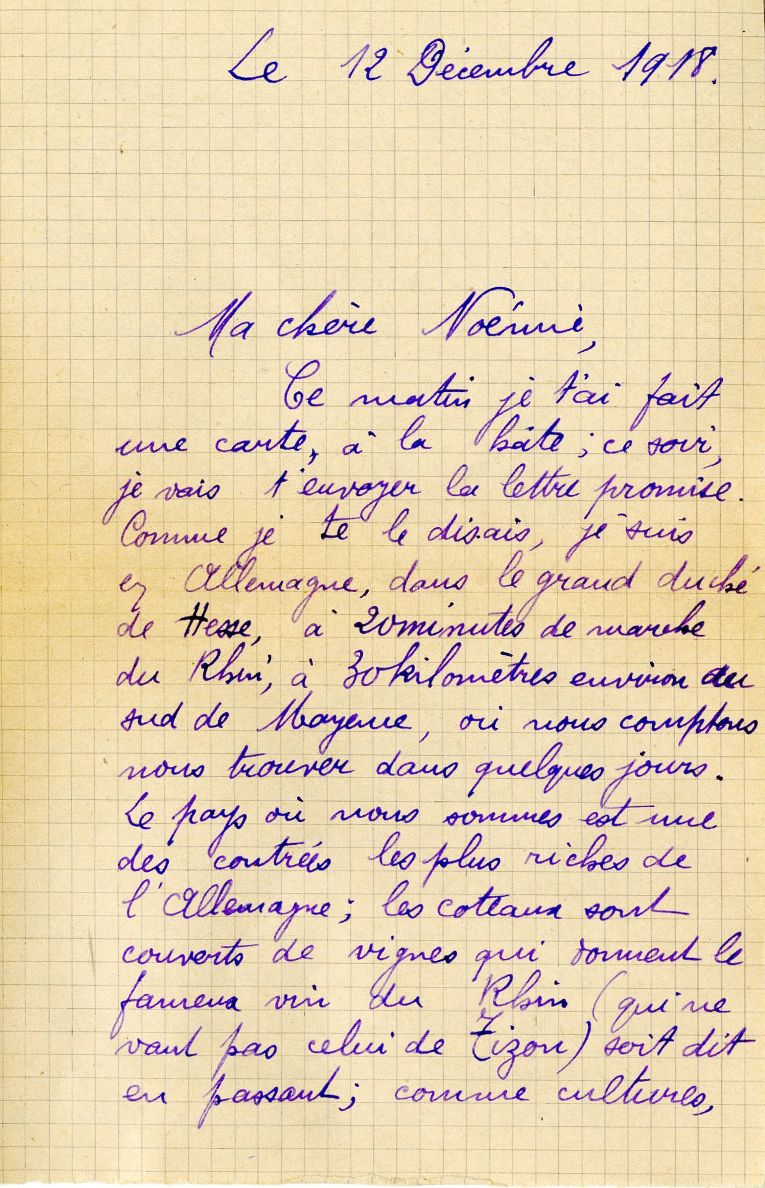 Le 12 Décembre 1918.
Ma chère Noémie,
Ce matin je t'ai fait
une carte, à la hâte ; ce soir,
je vais t'envoyer la lettre promise.
Comme je te le disais, je suis
en Allemagne, dans le grand duché
de Hesse, à 20 minutes de marche
du Rhin, à 30 kilomètres environ au
sud de Mayence, où nous comptons
nous trouver dans quelques jours.
Le pays où nous sommes est une
des contrées les plus riches de
l'Allemagne ; les coteaux sont
couverts de vignes qui donnent le
fameux vin du Rhin (qui ne
vaut pas celui de Tizon) soit dit
en passant ; comme cultures,